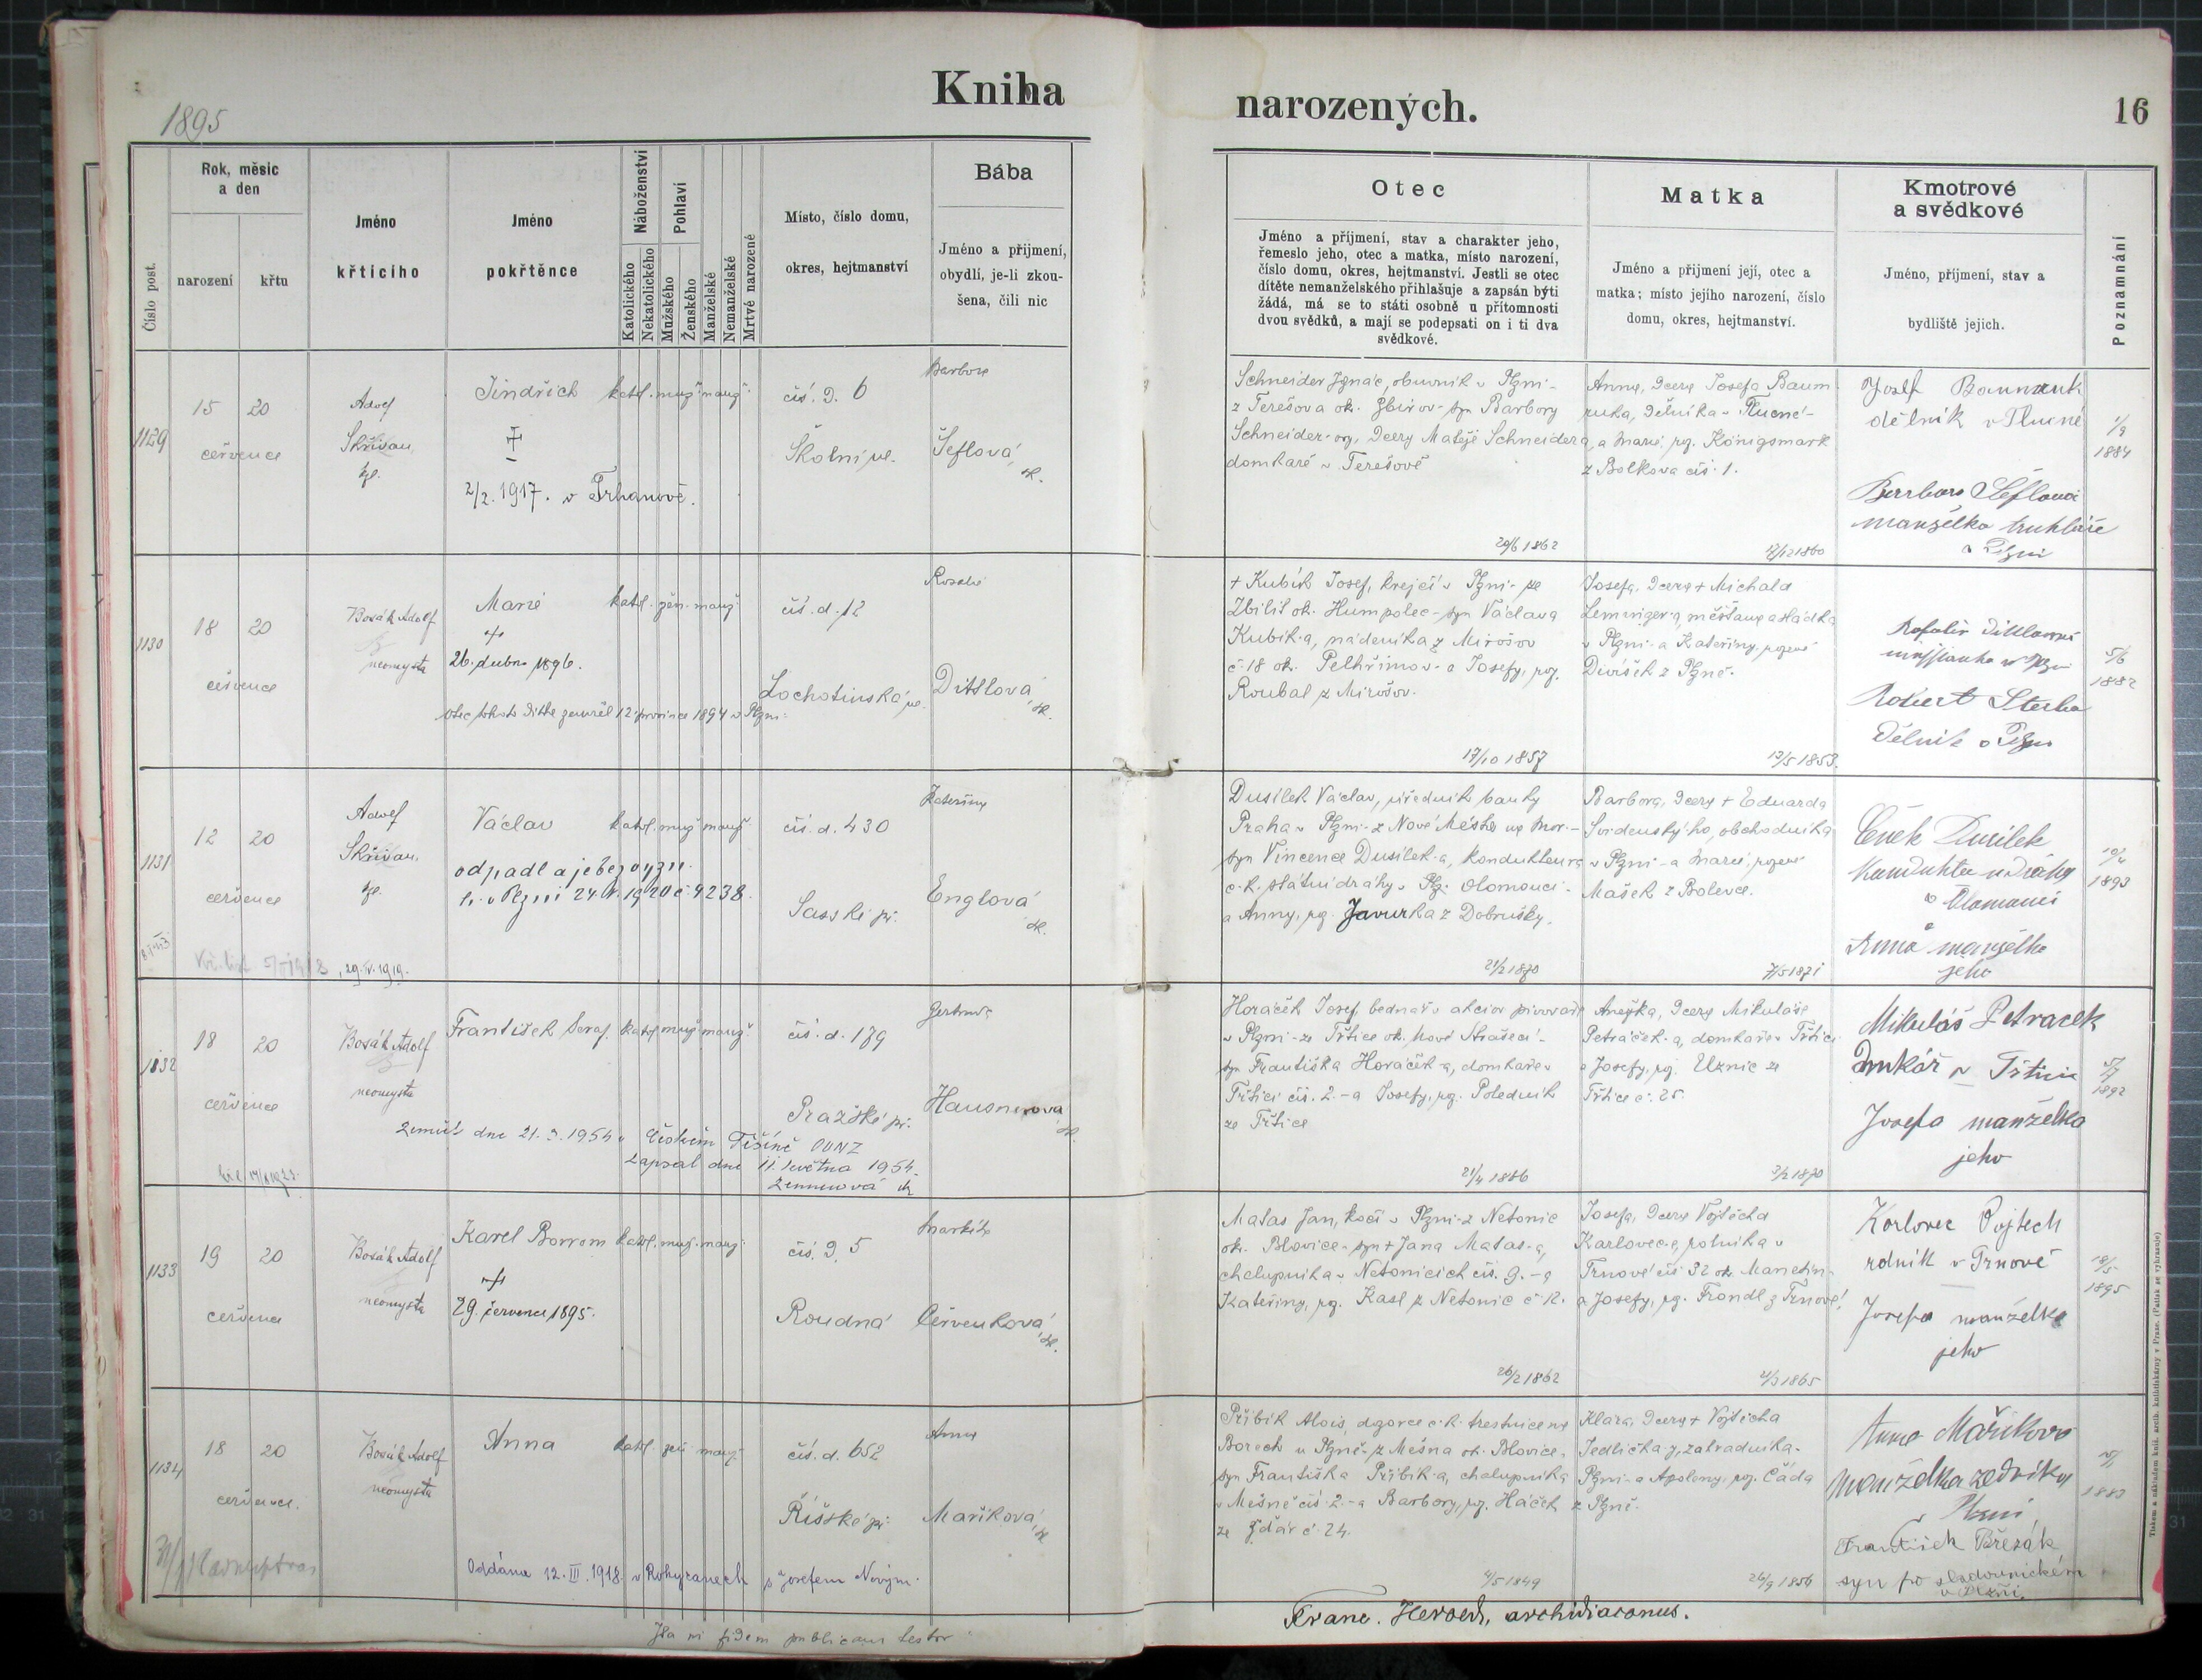 Kniha
narozených.
16
1895
Číslo post.
Rok, měsíc
a den
narození
křtu
Jméno
křtícího
Jméno
pokřtěnce
Náboženství
Katolického
Nekatolického
Pohlaví
Mužského
Ženského
Manželské
Nemanželské
Mrtvě narozené
Místo, číslo domu,
okres, hejtmanství
Bába
Jméno a přijmení,
obydlí, je-li zkou-
šena, čili nic
Otec
Jméno a příjmení, stav a charakter jeho,
řemeslo jeho, otec a matka, místo narození,
číslo domu, okres, hejtmanství. Jestli se otec
dítěte nemanželského přihlašuje a zapsán býti
žádá, má se to státi osobně u přítomnosti
dvou svědků, a mají se podepsati on i ti dva
svědkové.
Matka
Jméno a přijmení její, otec a
matka; místo jejího narození, číslo
domu, okres, hejtmanství.
Kmotrové
a svědkové
Jméno, příjmení, stav a
bydliště jejich.
Poznamnání
1129
15
20
července
Adolf
Skřivan
kpl.
Jindřich
2/2. 1917. v Trhanově.
katol. muž. manž.
čís. d. 6
Školní ul.
Barbora
Šeflová
zk.
Schneider Ignác, obuvník v Plzni-
z Terešova ok. Zbirov- syn Barbory
Schneider-ov, dcery Matěje Schneidera,
domkáře v Terešově
29/6 1862
Anna, dcera Josefa Baum
ruka, dělníka v Tlucné-
a Marie, roz. Königsmark
z Bolkova čís. 1.
12/12 1860
Josef Baumruk
dělník v Tlucné
Barbora Šeflová
manželka truhláře
v Plzni
1/9
1884
1130
18
20
července
Bosák Adolf
neomysta
Marie
26. dubna 1896.
otec tohoto dítka zemřel 12. prosince 1894 v Plzni.
katol. žen. manž.
čís. d. 12
Lochotínská ul.
Rosalie
Dittlová
zk.
+ Kubík Josef, krejčí v Plzni- ze
ok. Humpolec- syn Václava
Kubík-a, nádeníka z Mirošov
č. 18 ok. Pelhřimov- a Josefy, roz.
Roubal z Mirošov.
17/10 1857
Josefa, dcera + Michala
Lemminger-a, měšťana a sládka
v Plzni- a Kateřiny, rozené
Divíšek z Plzně.
13/5 1853.
Robert Sterba
Dělník v Plzni
5/6
1882
1131
12
20
července
Adolf
Skřivan
kpl.
29. IV. 1919.
Václav
odpadl a je bez vyzn.
h. v Plzni 24. V. 1920 č. 9238.
katol. muž. manž.
čís. d. 430
Saská tř.
Kateřina
Englová
zk.
Dusílek Václav, úředník banky
Praha v Plzni- z Nové Město na Mor.-
syn Vincence Dusílek-a, kondukteura
c. k. státní dráhy v Olomouci-
a Anny, roz. Javurka z Dobrušky.
21/2 1870
Barbora, dcera + Eduarda
Svidenský-ho, obchodníka
v Plzni- a Marie, rozené
Mašek z Bolevce.
7/5 1871
Čeněk Dusílek
Kondukter u Dráhy
v Olomouci
a
Anna manželka
jeho
10/4
1893
1132
18
20
července
Bosák Adolf
neomysta
František Seraf.
katol. muž. manž.
čís. d. 179
Pražská tř.
Gertruda
Hausnerová
zk.
Zemřel dne 21. 3. 1954 v Českém Těšíně OÚNZ
Zapsal dne 11. května 1954.
Horáček Josef, bednář v akciov. pivovaře
v Plzni- ze Třtice ok. Nové Strašecí-
syn Františka Horáček-a, domkáře v
Třtici čís. 2.- a Josefy, roz. Poledník
ze Třtice
21/4 1886
Anežka, dcera Mikuláše
Petráček-a, domkáře v Třtici
a Josefy, roz. Uznic ze
Třtice č. 25.
3/2 1870
Mikuláš Petracek
Domkář v Třtici
Josefa manželka
jeho
1892
1133
19
20
července
Bosák Adolf
neomysta
Karel Borrom
29. července 1895.
katol. muž. manž.
čís. d. 5
Roudná
Markéta
Červenková
zk.
Matas Jan, kočí v Plzni- z Netonic
ok. Blovice- syn + Jana Matas-a,
chalupníka v Netonicích čís. 9.- a
Kateřiny, roz. Kasl z Netonic č. 12.
26/2 1862
Josefa, dcera Vojtěcha
Karlovec-e, rolníka v
Trnové čís. 32 ok. Manětín-
a Josefy, roz. Frondl z Trnové.
2/3 1865
Korlovec Vojtech
rolník v Trnové
Josefa manželka
jeho
1895
1134
18
20
července.
Bosák Adolf
neomysta
Anna
katol. žen. manž.
čís. d. 652
Říšská tř.
Anna
Maříková
zk.
Oddána 12. III. 1918 v Rokycanech s Josefem Novým.
Přibík Alois, dozorce c. k. trestnice na
Borech u Plzně- z Měšna ok. Blovice-
syn Františka Přibík-a, chalupníka
v Měšně čís. 2.- a Barbory, roz. Háček
ze Ždár č. 24.
4/5 1849
Klára, dcera + Vojtěcha
Jedlička-y, zahradníka-
Plzni- a Apoleny, roz. Čáda
z Plzně.
26/9 1856
Anna Maříkova
manželka zedníka
Plzni
František Březák
syn po sladovnickém
v Plzni.
1882
Ita in fidem publicam testor
Franc. Herold, archidiaconus.